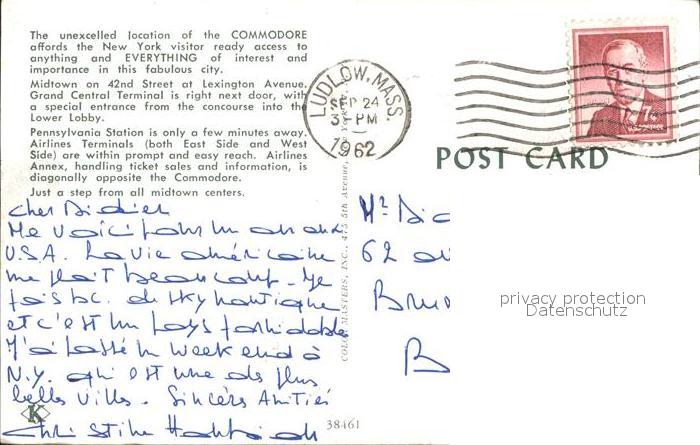 The unexcelled location of the COMMODORE
affords the New York visitor ready access to
anything and EVERYTHING of interest and
importance in this fabulous city.
Midtown on 42nd Street at Lexington Avenue.
Grand Central Terminal is right next door, with
a special entrance from the concourse into the
Lower Lobby.
Pennsylvania Station is only a few minutes away.
Airlines Terminals (both East Side and West
Side) are within prompt and easy reach. Airlines
Annex, handling ticket sales and information, is
diagonally opposite the Commodore.
Just a step from all midtown centers.
LUDLOW, MASS.
SEP 24
3 PM
1962
POST CARD
cher Didier
Me voici pour un an aux
U.S.A. La vie américaine
me plaît beaucoup. Je
fais bc. de sky nautique
et c'est un pays formidable
J'ai passé un week end à
N.Y. qui est une des plus
belles villes. Sincères Amitiés
Christine
Mr Did
62 av
Bru
B
privacy protection
Datenschutz
INC., 475 5th Avenue,
K
38461